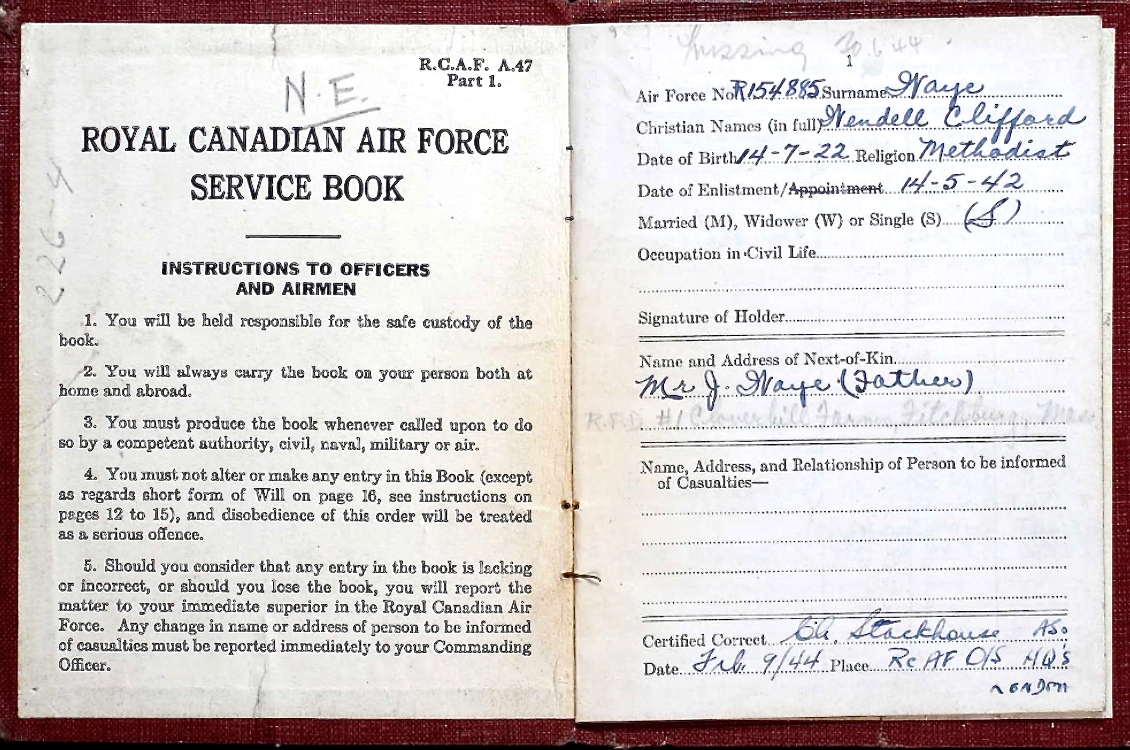 R.C.A.F. A.47
Part 1.
N.E.
ROYAL CANADIAN AIR FORCE
SERVICE BOOK
226-4
INSTRUCTIONS TO OFFICERS
AND AIRMEN
1. You will be held responsible for the safe custody of the
book.
2. You will always carry the book on your person both at
home and abroad.
3. You must produce the book whenever called upon to do
so by a competent authority, civil, naval, military or air.
4. You must not alter or make any entry in this Book (except
as regards short form of Will on page 16, see instructions on
pages 12 to 15), and disobedience of this order will be treated
as a serious offence.
5. Should you consider that any entry in the book is lacking
or incorrect, or should you lose the book, you will report the
matter to your immediate superior in the Royal Canadian Air
Force. Any change in name or address of person to be informed
of casualties must be reported immediately to your Commanding
Officer.
Missing 30.1.44
1
Air Force No. R154885 Surname Naye
Christian Names (in full) Wendell Clifford
Date of Birth 14-7-22 Religion Methodist
Date of Enlistment/Appointment 14-5-42
Married (M), Widower (W) or Single (S) (S)
Occupation in Civil Life
Signature of Holder
Name and Address of Next-of-Kin
Mr J. Naye (Father)
R.F.D. #1 Cloverhill Farm, Fitchburg, Mass
Name, Address, and Relationship of Person to be informed
of Casualties—
Certified Correct Stackhouse A/So
Date Feb. 9/44 Place RCAF O/S HQ's
LONDON